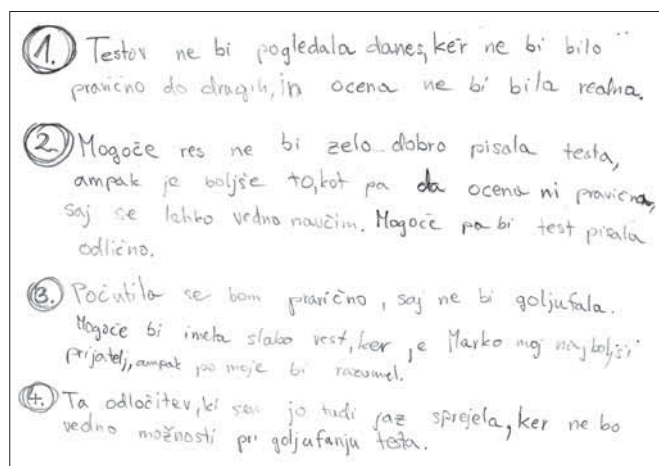 1. Testov ne bi pogledala danes, ker ne bi bilo
pravično do drugih, in ocena ne bi bila realna.
2. Mogoče res ne bi zelo dobro pisala testa,
ampak je boljše to, kot pa da ocena ni pravična,
saj se lahko vedno naučim. Mogoče pa bi test pisala
odlično.
3. Počutila se bom pravično, saj ne bi goljufala.
Mogoče bi imela slabo vest, ker je Marko moj najboljši
prijatelj, ampak po moje bi razumel.
4. Ta odločitev, ki sem jo tudi jaz sprejela, ker ne bo
vedno možnosti pri goljufanju testa.